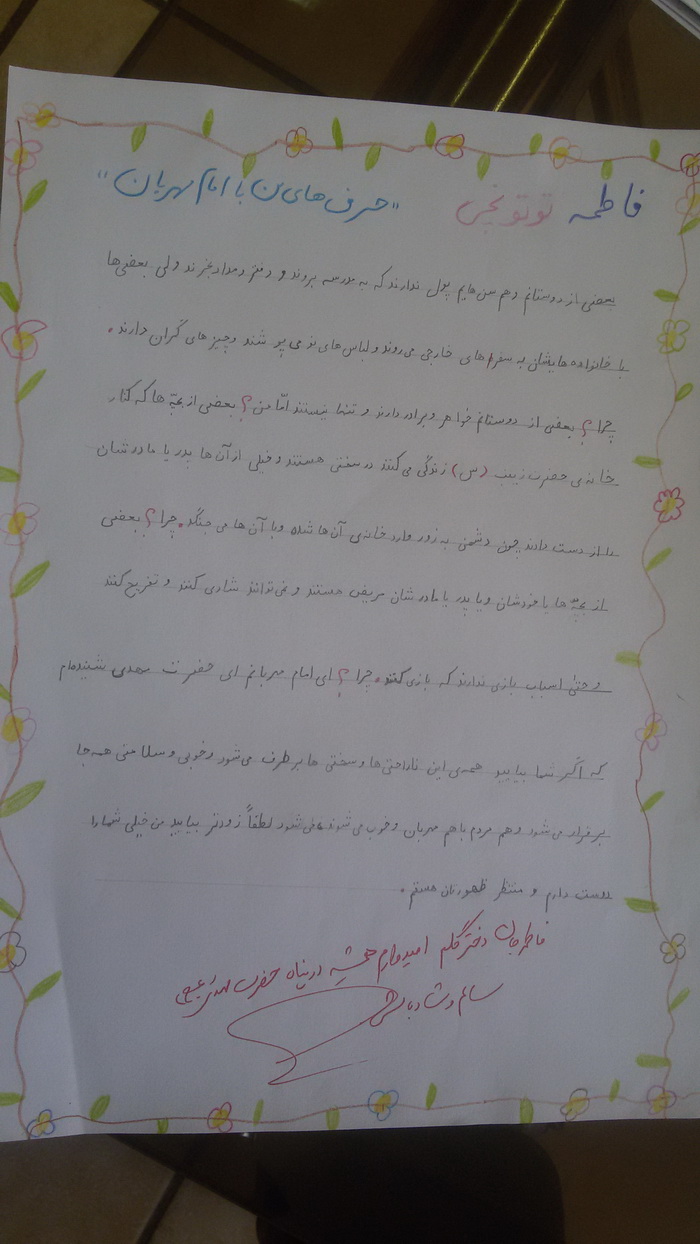 فاطمه توتونچی «حرف های من با امام مهربان»
بعضی از دوستانم و هم سن هایم پول ندارند که به مدرسه بروند و دفتر و مداد بخرند ولی بعضی ها
با خانواده هایشان به سفر های خارجی می روند و لباس های نو می پوشند و چیز های گران دارند.
چرا؟ بعضی از دوستانم خواهر و برادر دارند و تنها نیستند امّا من؟ بعضی از بچّه ها که کنار
خانه ی حضرت زینب (س) زندگی می کنند در سختی هستند و خیلی از آن ها پدر یا مادرشان
را از دست دادند چون دشمن به زور وارد خانه ی آن ها شده و با آن ها می جنگد. چرا؟ بعضی
از بچّه ها یا خودشان و یا پدر یا مادرشان مریض هستند و نمی توانند شادی کنند و تفریح کنند
و حتّی اسباب بازی ندارند که بازی کنند. چرا؟ ای امام مهربانم ای حضرت مهدی شنیده ام
که اگر شما بیایید همه ی این ناراحتی ها و سختی ها برطرف می شود و خوبی و سلامتی همه جا
برقرار می شود و هم مردم با هم مهربان و خوب می شوند لطفاً زودتر بیایید من خیلی شما را
دوست دارم و منتظر ظهورتان هستم.
فاطمه جان دختر گلم امیدوارم همیشه در پناه حضرت مهدی (عج)
سالم و شاد باشی